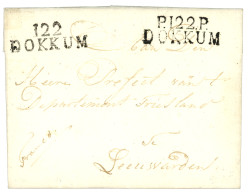 122
DOKKUM
P.122.P.
DOKKUM
Aan Den
Heere Prefect van t
Departement Friesland
Te
Leeuwarden